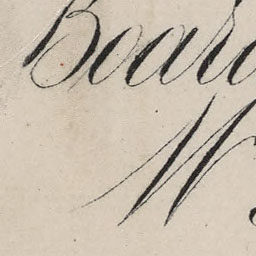 Board
W